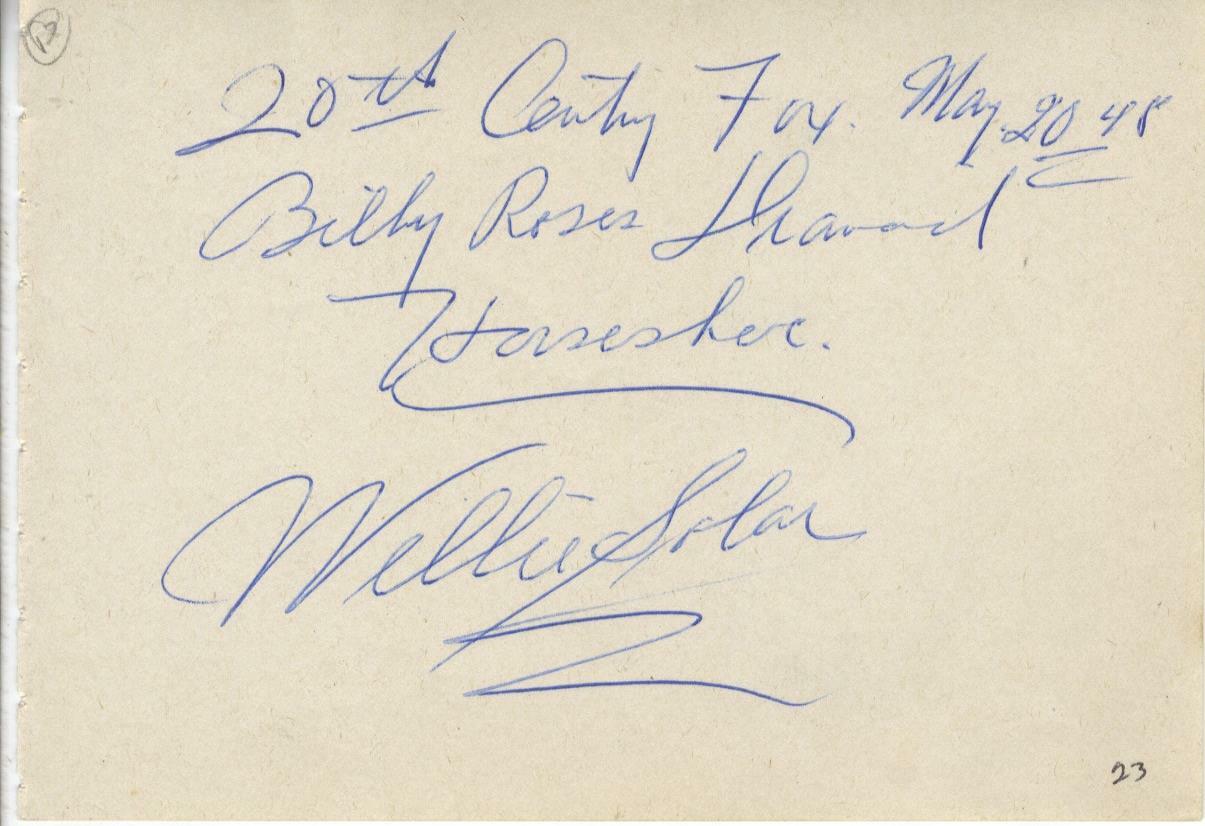 20th Century Fox. May. 20 48
Billy Roses Diamond
Horseshoe.
Willie Solar
23